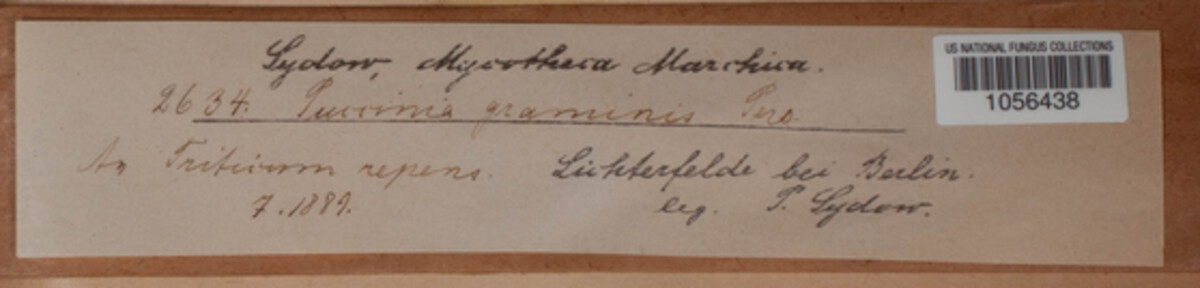 Sydow, Mycotheca Marchica.
2634. Puccinia graminis Pers.
An Triticum repens. Lichterfelde bei Berlin.
7.1889. leg. P. Sydow.
US NATIONAL FUNGUS COLLECTIONS
1056438